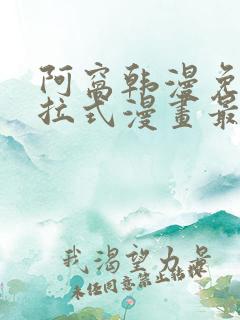 阿窩韩漫免
拉式漫畫最
我渴望力量
未经同意禁止转换